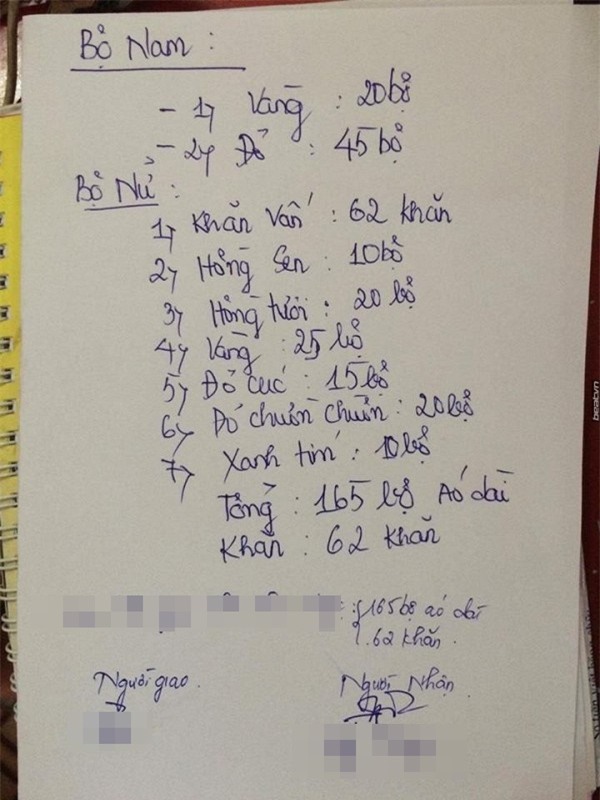 Bộ Nam :
- 1, Vàng : 20 bộ
- 2, Đỏ : 45 bộ
Bộ Nữ :
1, Khăn Vấn : 62 khăn
2, Hồng Sen : 10 bộ
3, Hồng tươi : 20 bộ
4, Vàng : 25 bộ
5, Đỏ cúc : 15 bộ
6, Đỏ chuồn chuồn : 20 bộ
7, Xanh tím : 10 bộ
Tổng : 165 bộ Aó dài
Khăn : 62 khăn
: 165 bộ aó dài
62 khăn.
Người giao.
Người Nhận
beatvn